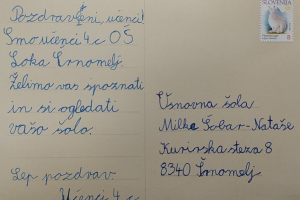 Pozdravljeni, učenci!
Smo učenci 4.c OŠ
Loka Črnomelj.
Želimo vas spoznati
in si ogledati
vašo šolo.
Lep pozdrav.
Učenci 4.c
SLOVENIJA
Osnovna šola
Milke Šobar-Nataše
Kurirska steza 8
8340 Črnomelj